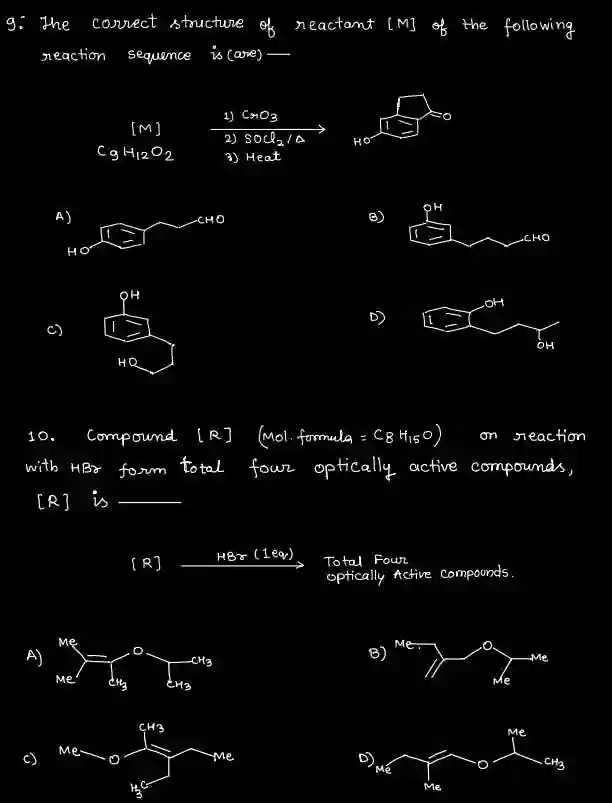 9: The correct structure of reactant [M] of the following
reaction sequence is (are) —
[M]
C9H12O2
1) CrO3
2) SOCl2/Δ
3) Heat
HO
O
A)
HO
CHO
B)
OH
CHO
C)
OH
HO
D)
OH
OH
10. Compound [R] (Mol. formula = C8H15O) on reaction
with HBr form total four optically active compounds,
[R] is ———
[R]
HBr (1eq)
Total Four
optically Active compounds.
A)
Me
Me
O
CH3
CH3
CH3
B)
Me
O
Me
Me
C)
Me
O
CH3
Me
H3C
D)
Me
Me
O
Me
CH3